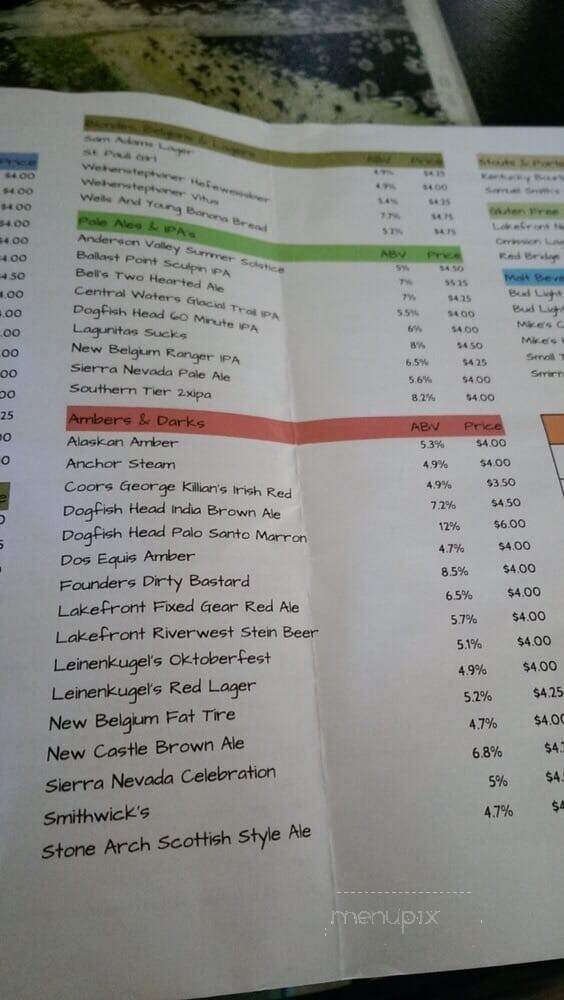 Price
$4.00
$4.00
$4.00
$4.00
$4.00
$4.00
4.50
4.00
.00
.00
.00
00
00
25
00
0
Blondes, Belgians & Lagers ABV Price
Sam Adams Lager 4.9% $4.25
St. Pauli Girl 4.9% $4.00
Weihenstephaner Hefeweissbier 5.4% $4.25
Weihenstephaner Vitus 7.7% $4.75
Wells And Young Banana Bread 5.2% $4.75
Pale Ales & IPA's ABV Price
Anderson Valley Summer Solstice 5% $4.50
Ballast Point Sculpin IPA 7% $5.25
Bell's Two Hearted Ale 7% $4.25
Central Waters Glacial Trail IPA 5.5% $4.00
Dogfish Head 60 Minute IPA 6% $4.00
Lagunitas Sucks 8% $4.50
New Belgium Ranger IPA 6.5% $4.25
Sierra Nevada Pale Ale 5.6% $4.00
Southern Tier 2xipa 8.2% $4.00
Ambers & Darks ABV Price
Alaskan Amber 5.3% $4.00
Anchor Steam 4.9% $4.00
Coors George Killian's Irish Red 4.9% $3.50
Dogfish Head India Brown Ale 7.2% $4.50
Dogfish Head Palo Santo Marron 12% $6.00
Dos Equis Amber 4.7% $4.00
Founders Dirty Bastard 8.5% $4.00
Lakefront Fixed Gear Red Ale 6.5% $4.00
Lakefront Riverwest Stein Beer 5.7% $4.00
Leinenkugel's Oktoberfest 5.1% $4.00
Leinenkugel's Red Lager 4.9% $4.00
New Belgium Fat Tire 5.2% $4.25
New Castle Brown Ale 4.7% $4.00
Sierra Nevada Celebration 6.8% $4.
Smithwick's 5% $4.
Stone Arch Scottish Style Ale 4.7% $4
Stouts & Porte
Kentucky Bourb
Samuel Smith's
Gluten Free
Lakefront N
Omission La
Red Bridge
Malt Beve
Bud Light
Bud Light
Mike's
Mike's
Small T
Smirn
menupix